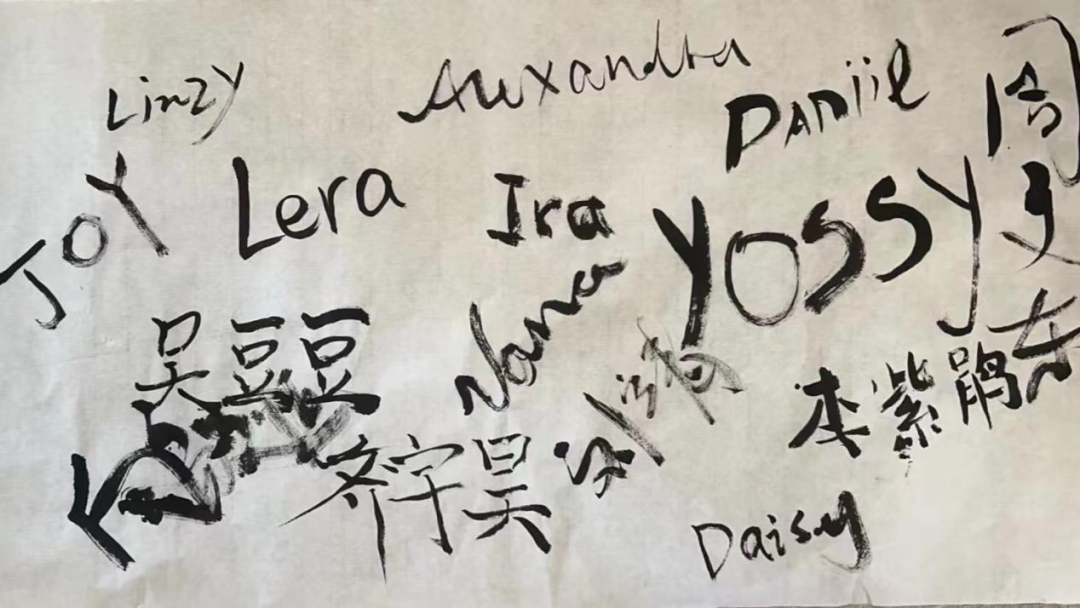 Linzy
Alexandra
Daniil
JOY
Lera
Ira
Yossy
Nana
吴豆豆
李紫鹃
齐宇昊
Daisy